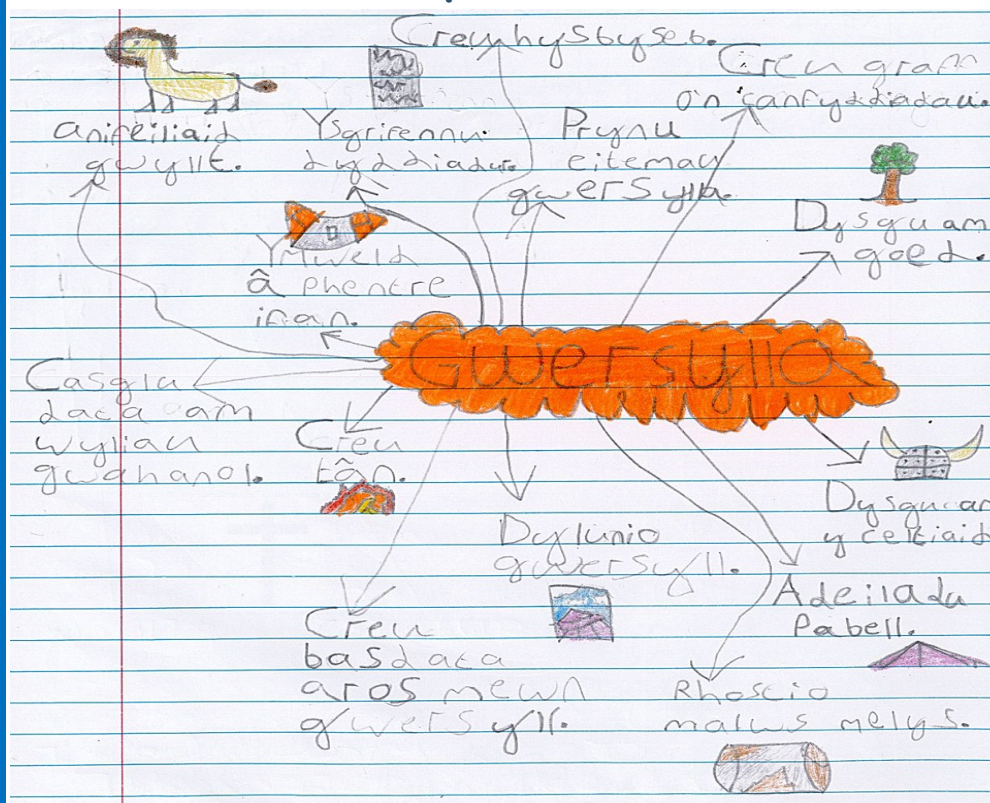 Creu hysbyseb.
Creu graff
o'n canfyddiadau.
anifeiliaid
gwyllt.
Ysgrifennu
dyddiadur.
Prynu
eitemau
gwersylla.
Dysgu am
goed.
Ymweld
â phentre
ifan.
Gwersylla
Casglu
data am
wyliau
gwahanol.
Creu
tân.
Dysgu ar
y celtiaid
Dylunio
gwersyll.
Adeiladu
Pabell.
Creu
basdata
aros mewn
gwersyll.
Rhostio
malws melys.